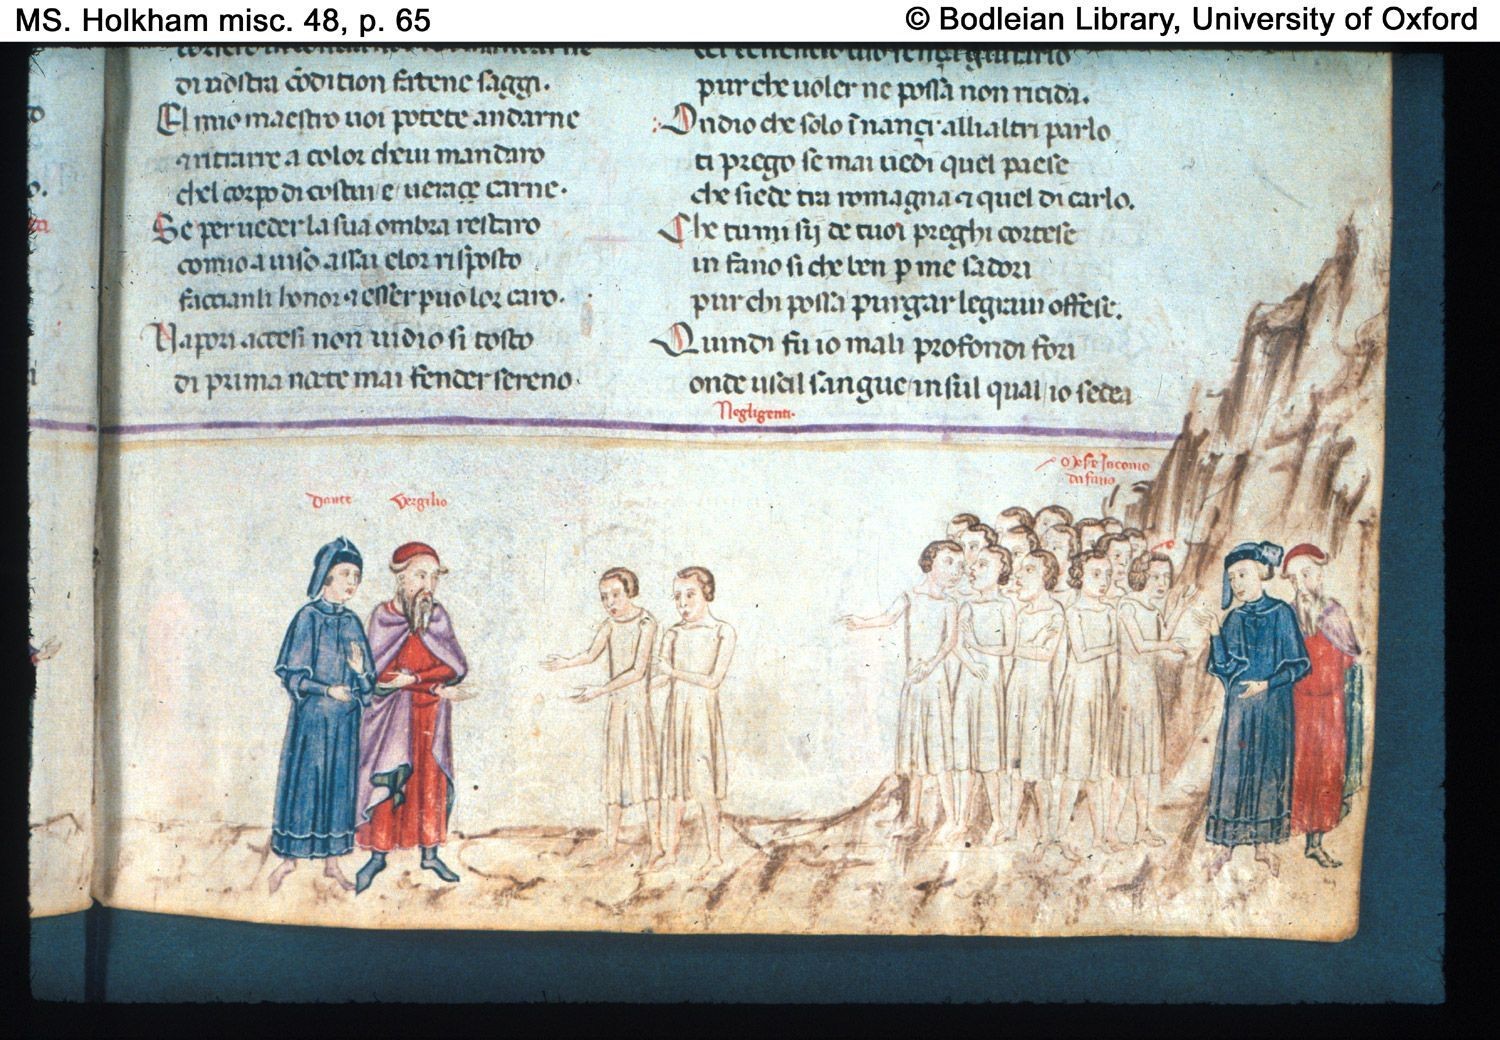 MS. Holkham misc. 48, p. 65
© Bodleian Library, University of Oxford
di nostra cõdition fatene saggi.
El mio maestro uoi potete andarne
a ritrarre a color cheui mandaro
chel corpo di costui e uerace carne.
Se per ueder la sua ombra restaro
comio auiso assai e lor risposto
faccianli honor ⁊ esser puo lor caro.
Vapori accesi non uidio si tosto
di prima nocte mai fender sereno.
pur che uoler ne possa non ricida.
Ondio che solo ĩnançi alli altri parlo
ti prego se mai uedi quel paese
che siede tra romagna ⁊ quel di carlo.
Che tu mi sij de tuoi preghi cortese
in fano si che ben p me sadori
pur chi possa purgar le graui offese.
Quindi fu io ma li profondi fori
onde uscil sangue in sul qual io sedea
Negligenti.
Dante
Vergilio
Iacomo
da fano